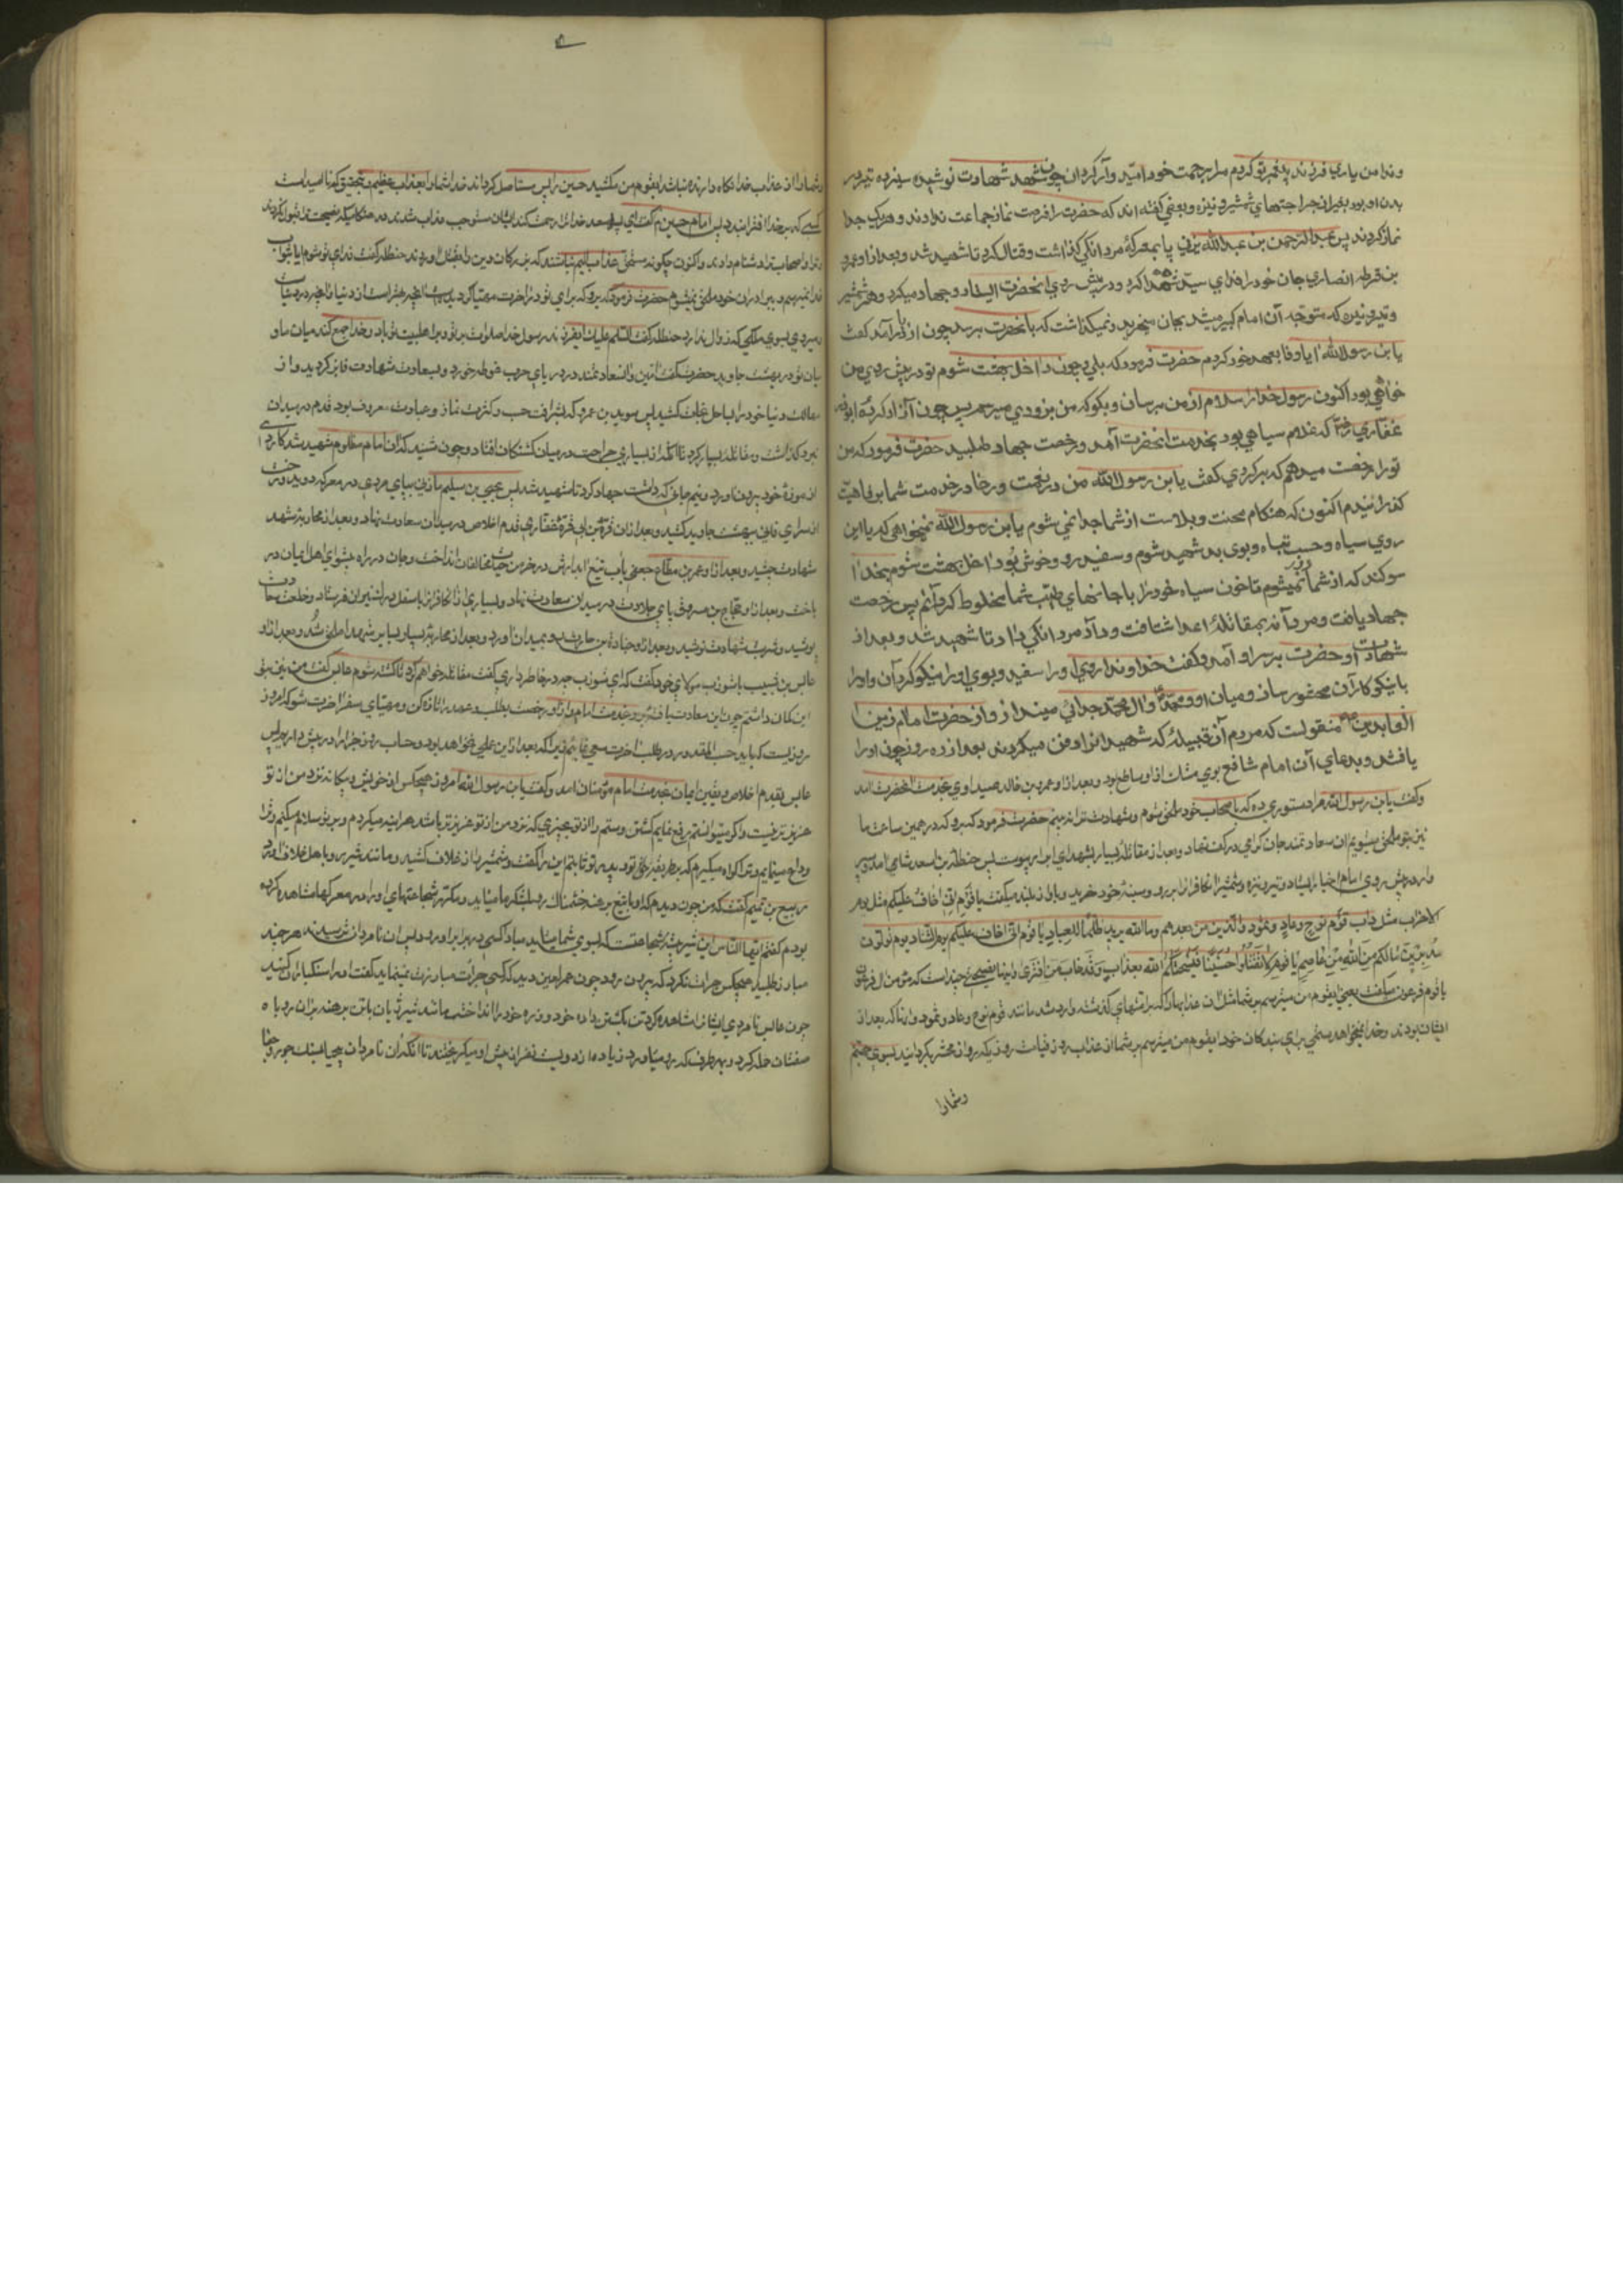 وندا من یاری فرزند پیغمبر تو کردم مرا برحمت خود امید وآر کردان چون شهد شهادت نوشید سیزده تیر در
بدن او بود بغیر از جراحتهای شمشیر و نیزه و بعضی کفته اند که حضرت را فرصت نماز جماعت ندادند و هریک جدا
نماز کردند پس عبدالرحمن بن عبدالله یزنی پا بمعرکهٔ مردانکی کذاشت و قتال کرد تا شهید شد و بعد از او عمرو
بن قرطه انصاری جان خود را فدای سید شهدا کرد و در پیش روی انحضرت ایستاد و جهاد میکرد و هر شمشیر
و تیر و نیزه که متوجه آن امام کبیر میشد بجان میخرید و نمیکذاشت که بانحضرت برسد چون از پا درآمد کفت
یا بن رسول الله ایا وفا بعهد خود کردم حضرت فرمود که بلی و چون داخل بهشت شوم تو در پیش روی من
خواهی بود اکنون رسول خدا را سلام از من برسان و بکو که من بزودی میرسم پس چون آزاد کردهٔ ابوذر
غفاری رض که غلام سیاهی بود بخدمت انحضرت آمد و رخصت جهاد طلبید حضرت فرمود که من
تو را رخصت میدهم که برکردی کفت یا بن رسول الله من در نعمت و رخا در خدمت شما برفاهیت
کذرانیدم اکنون که هنکام محنت و بلاست از شما جدا نمی شوم یا بن رسول الله نمیخواهی که با این
روی سیاه و حسب تباه و بوی بد شهید شوم و سفید رو و خوش بو داخل بهشت شوم بخدا
سوکند که از شما دور نمیشوم تا خون سیاه خود را با خانهای طیب شما مخلوط کردانم پس رخصت
جهاد یافت و مردآنه بمقاتلهٔ اعدا شتافت و داد مردانکی داد تا شهید شد و بعد از
شهادت او حضرت بر سر او آمد و کفت خداوندا روی او را سفید و بوی او را نیکو کردآن و او را
با نیکو کارآن محشور سان و میان او و محمد و آل محمد جدائی مینداز و از حضرت امام زین
العابدین منقولست که مردم آن قبیله که شهیدانرا دفن میکردند بعد از ده روز چون او را
یافتند و بدعای آن امام شافع بوی مشک از او ساطع بود و بعد از او عمرو بن خالد صیداوی بخدمت انحضرت امد
وکفت یا بن رسول الله مرا دستوری ده که باصحاب خود ملحق شوم و شهادت ترا نه بینم حضرت فرمود که برو که در همین ساعت ما
نیز بتو ملحق میشویم ان سعادتمند جان کرامی در کف نهاد و بعد از مقاتلهٔ بسیار بشهدای ابرار پیوست پس حنظلة بن اسعد شامی امد و سپر
وار در پیش روی امام اخیار ایستاد و تیر و نیزه و شمشیر انکافرانرا برو و سینهٔ خود خرید و باواز بلند میکفت یا قوم انی اخاف علیکم مثل یوم
الاحزاب مثل داب قوم نوح وعاد وثمود والذین من بعدهم وما الله یرید ظلما للعباد یا قوم انی اخاف علیکم یوم التناد یوم تولون
مدبرین مالکم من الله من عاصم یا قوم لا تقتلوا حسینا فیسحتکم الله بعذاب وقد خاب من افتری
یا قوم فرعون میکفت یعنی ایقوم من میترسم بر شما مثل ان عذابها را که بر امتهای کذشته وارد شد مانند قوم نوح و عاد و ثمود و انانکه بعد از
ایشان بودند و خدا نمیخواهد ستمی برای بندکان خود ایقوم من میترسم بر شما از عذاب روز قیامت روزیکه رو از محشر بکردانید بسوی جهنم
وشمارا
وشمارا از عذاب خدا نکاه دارنده نباشد ایقوم من مکشید حسین را پس مستاصل کرداند خدا شما را بعذاب عظیم و بتحقیق که ناامید است
کسی که بر خدا افترا بندد پس امام حسین ع کفت ای پسر سعد خدا ترا رحمت کند ایشان مستوجب عذاب شدند در هنکامیکه نصیحت ترا قبول نکردند
و ترا و اصحاب ترا دشنام دادند و اکنون چکونه مستحق عذاب الیم نباشند که بزرکان دین را بقتل اوردند حنظله کفت فدای تو شوم ایا بثواب
خدا نمیرسم و ببرادران خود ملحق نمیشوم حضرت فرمود که برو که برای تو در اخرت مهیا کردیده
میروی بسوی ملکی که زوال ندارد حنظله کفت السلام علیک ایفرزند رسول خدا صلوات بر تو و بر اهلبیت تو باد و خدا جمع کند میان ما و
میان تو در بهشت جاوید حضرت کفت امین و انسعادتمند در دریای حرب غوطه خورد و بسعادت شهادت فایز کردید و از
مهالک دنیا خود را بساحل نجات کشید پس سوید بن عمرو که بشرافت حسب و کثرت نماز و عبادت معروف بود قدم در میدان
نبرد کذاشت و مقاتله بسیار کرد تا انکه از بسیاری جراحت در میان کشتکان افتاد و چون شنید که ان امام مظلوم شهید شد کاردی
از موزهٔ خود بیرون اورد و بنیم جانی که داشت جهاد کرد تا شهید شد پس یحیی بن سلیم مازنی بپای مردی در معرکه دوید و رخت
از سرای فانی ببهشت جاوید کشید و بعد از ان قرة بن ابی قرة غفاری قدم اخلاص در میدان سعادت نهاد و بعد از محاربه شهد
شهادت چشید و بعد از او عمر بن مطاع جعفی باب تیغ ابدارش در خرمن حیات مخالفان انداخت و جان در راه پیشوای اهل ایمان در
باخت و بعد از او حجاج بن مسروق پای جلادت در میدان سعادت نهاد و بسیاری از انکافرانرا باسفل درک نیران فرستاد و خلعت سعادت
پوشید و شربت شهادت نوشید و بعد از او جنادة بن حارث رو بمیدان اورد و بعد از محاربه بسیار بسایر شهدا ملحق شد و بعد از او
عابس بن شبیب با شوذب مولای خود کفت که ای شوذب چه در خاطر داری کفت مقاتله خواهم کرد تا کشته شوم عابس کفت من نیز بتو
این کمان داشتم چون این سعادت یافتهٔ برو بخدمت امام و از او رخصت بطلب و عهد را تازه کن و مهیای سفر اخرت شو که امروز
روزیست که باید حسب المقدور در طلب اخرت سعی نمائیم زیرا که بعد از این عملی نخواهد بود و حساب روز جزا را در پیش داریم پس
عابس بقدم اخلاص و یقین و ایمان بخدمت امام مؤمنان امد و کفت یا بن رسول الله امروز هیچکس از خویش و بیکانه نزد من از تو
عزیزتر نیست و اکر میتوانستم برفع نمایم کشتن و ستم را از تو بچیزی که نزد من از تو عزیزتر باشد هراینه میکردم و بر تو سلام میکنم و ترا
وداع مینمایم و ترا کواه میکیرم که بر طریقهٔ حق تو و پدر تو ثابتم این را کفت و شمشیر را از غلاف کشید و مانند شیر رو باهل خلاف اورد
ربیع بن تمیم کفت که من چون دیدم که او با تیغ برهنه خشمناک رو بلشکر ما میاید و مکرر شجاعتهای او را در معرکها مشاهده کرده
بودم کفتم ایها الناس این شیر بیشهٔ شجاعتست که بسوی شما میاید مبادا کسی در برابر او رود پس ان نامردان ترسیدند هرچند
مبارز طلبید هیچکس جرات نکرد که بیرون رود چون عمر لعین دید که کسی جرات مبارزت نمینماید کفت او را سنکباران کنید
چون عابس نامردی ایشانرا مشاهده کرد تن بکشتن داده خود و زره خود را انداخت و مانند شیر ژیان باتن برهنه بران روباه
صفتان حمله کرد و بهر طرف که رو میاورد زیاده از دویست نفر از پیش او میکریختند تا انکه ان نامردان